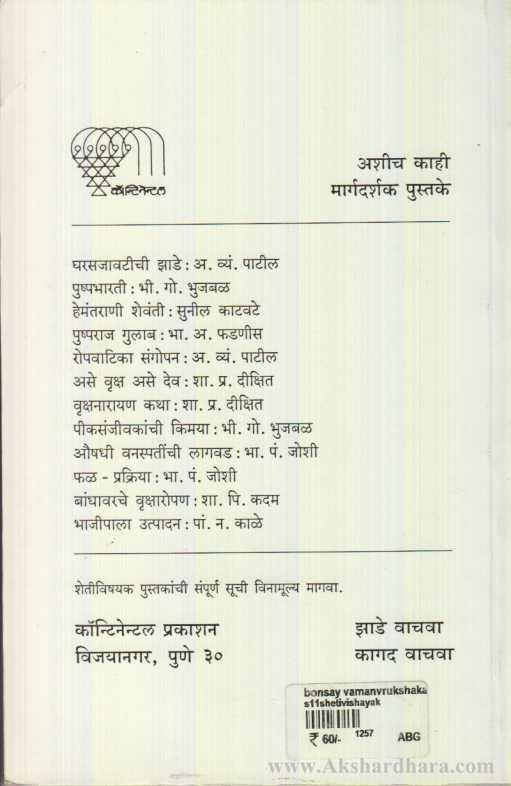 कॉन्टिनेन्टल
अशीच काही
मार्गदर्शक पुस्तके
घरसजावटीची झाडे : अ. व्यं. पाटील
पुष्पभारती : भी. गो. भुजबळ
हेमंतराणी शेवंती : सुनील काटवटे
पुष्पराज गुलाब : भा. अ. फडणीस
रोपवाटिका संगोपन : अ. व्यं. पाटील
असे वृक्ष असे देव : शा. प्र. दीक्षित
वृक्षनारायण कथा : शा. प्र. दीक्षित
पीकसंजीवकांची किमया : भी. गो. भुजबळ
औषधी वनस्पतींची लागवड : भा. पं. जोशी
फळ - प्रक्रिया : भा. पं. जोशी
बांधावरचे वृक्षारोपण : शा. पि. कदम
भाजीपाला उत्पादन : पां. न. काळे
शेतीविषयक पुस्तकांची संपूर्ण सूची विनामूल्य मागवा.
कॉन्टिनेन्टल प्रकाशन
विजयानगर, पुणे ३०
झाडे वाचवा
कागद वाचवा
bonsay vamanvrukshaka
s11shetivishayak
₹ 60/- 1257 ABG
www.Akshardhara.com